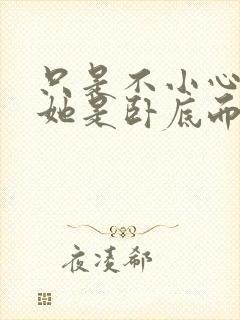 只是不小心
她是卧底而
夜凌郗